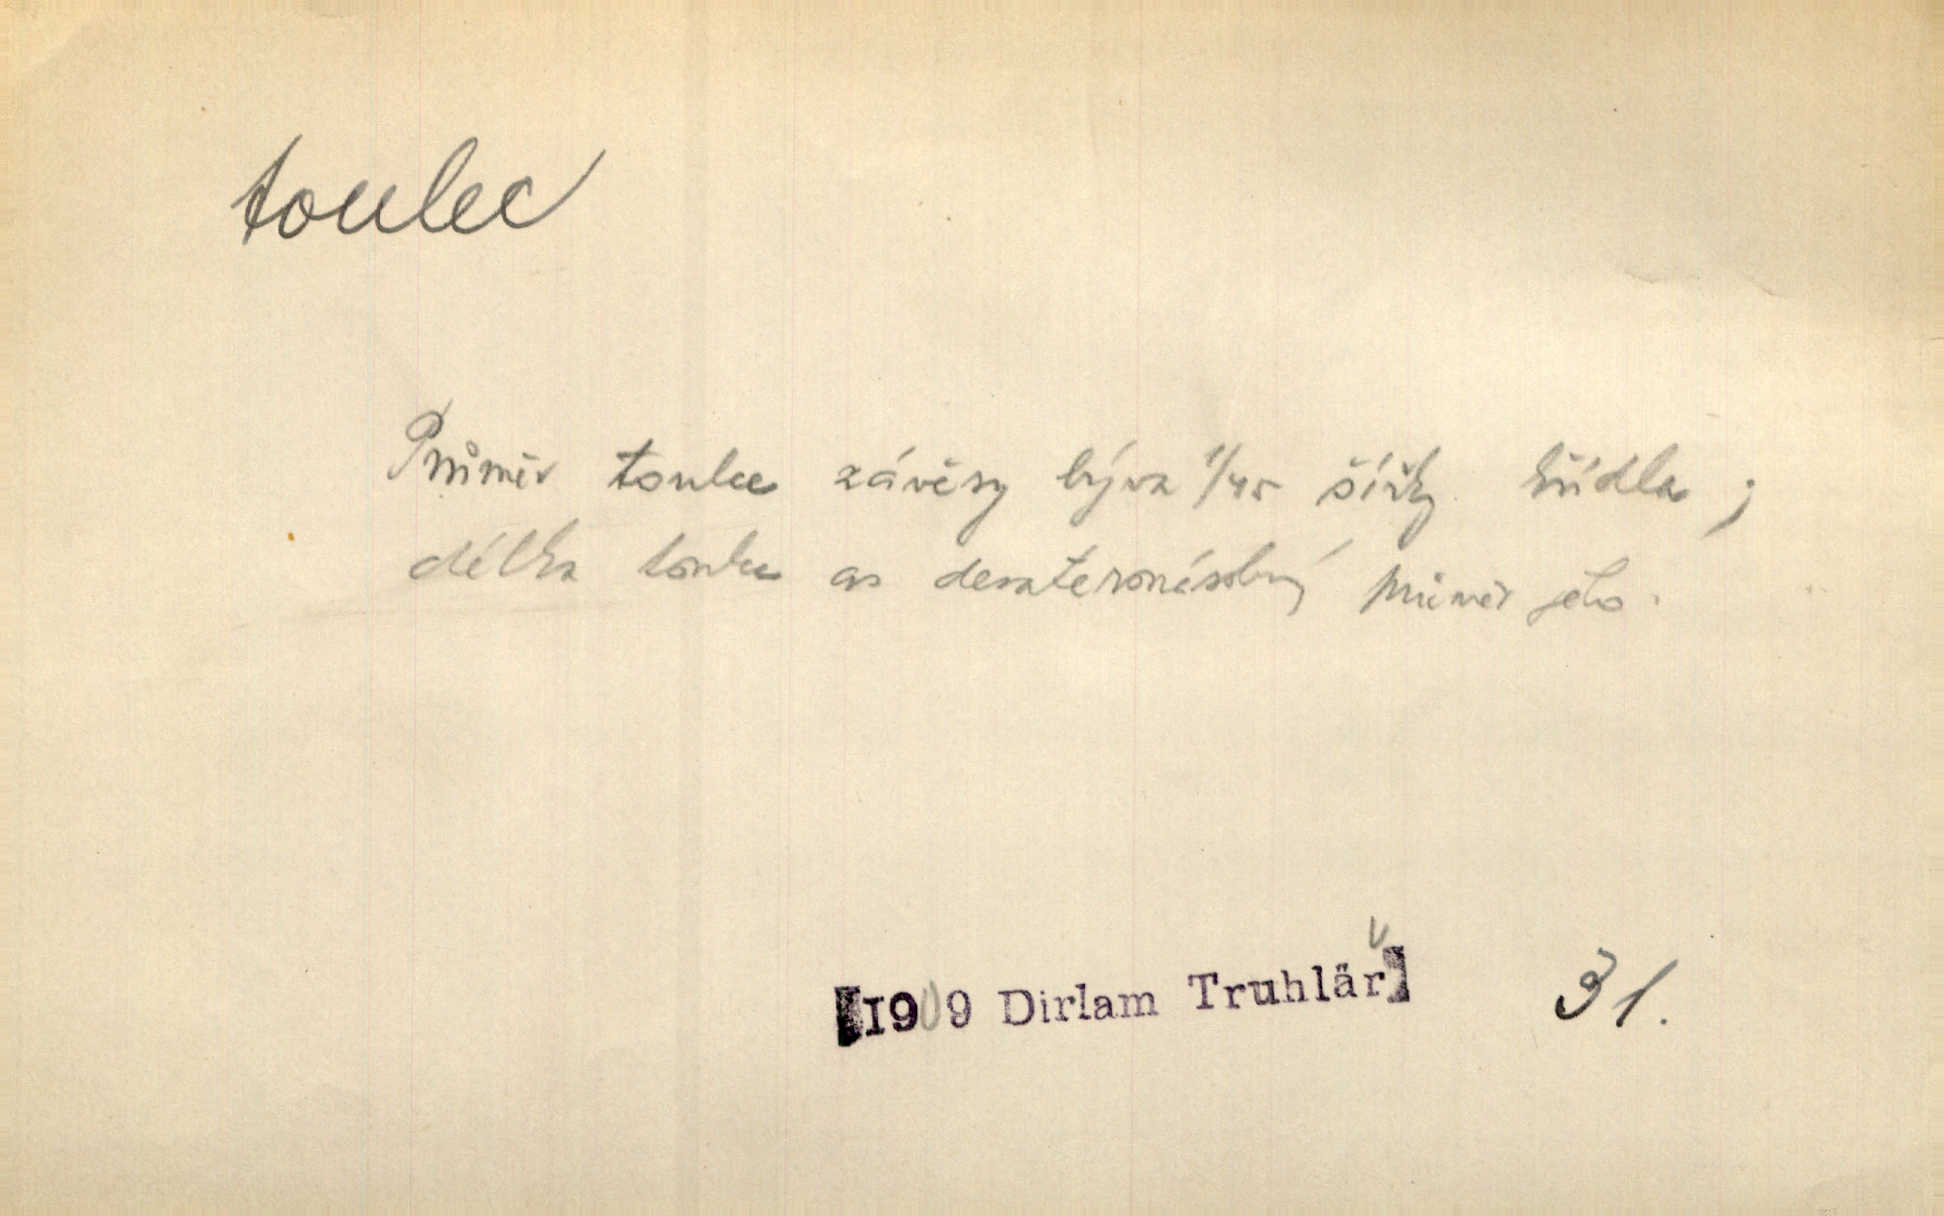 toulec
Průměr toulce závěsy bývá 1/45 šířky křídla ;
délka toulce as desateronásobný průměr jeho.
[1909 Dirlam Truhlář] 31.